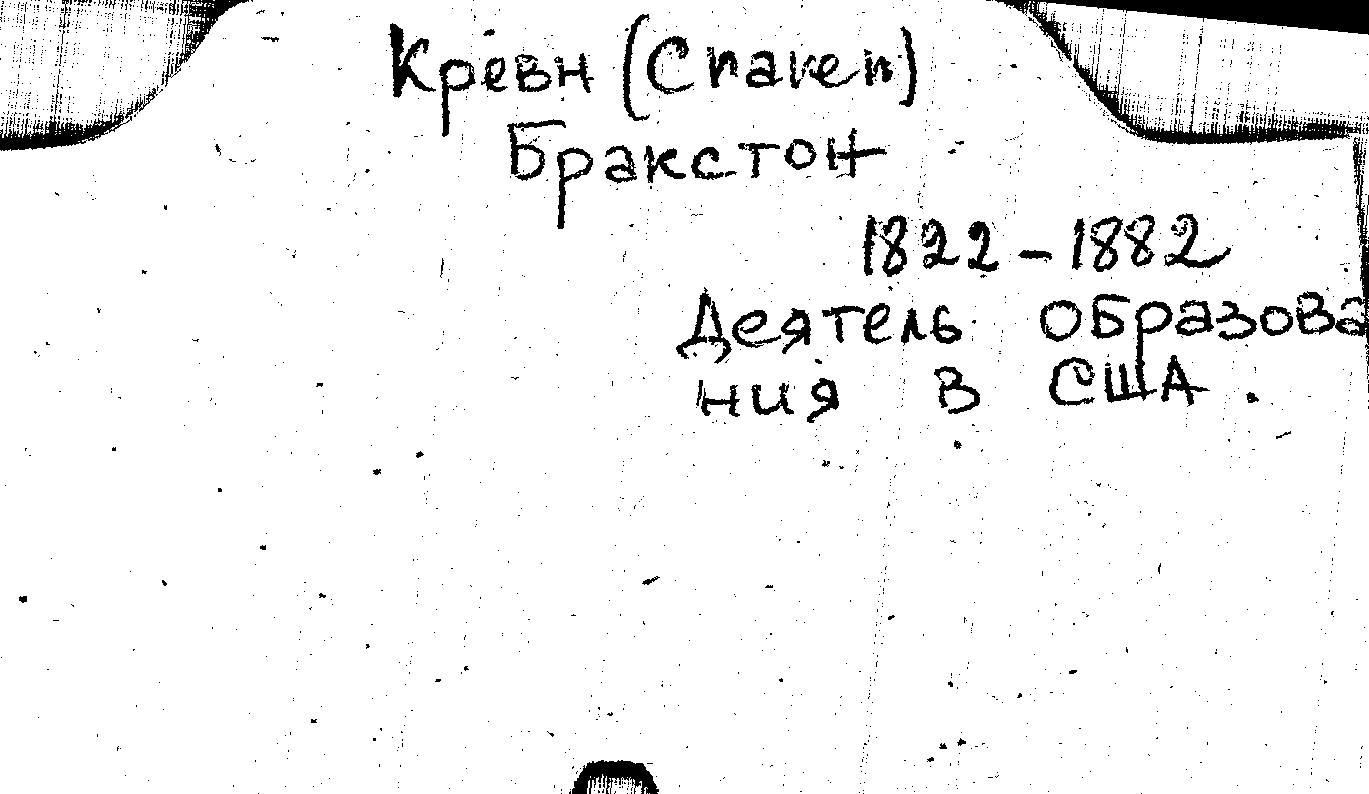 Кревн (Спакеп)
Бракстон
1822 - 1882
Деятель образова
ния в США.